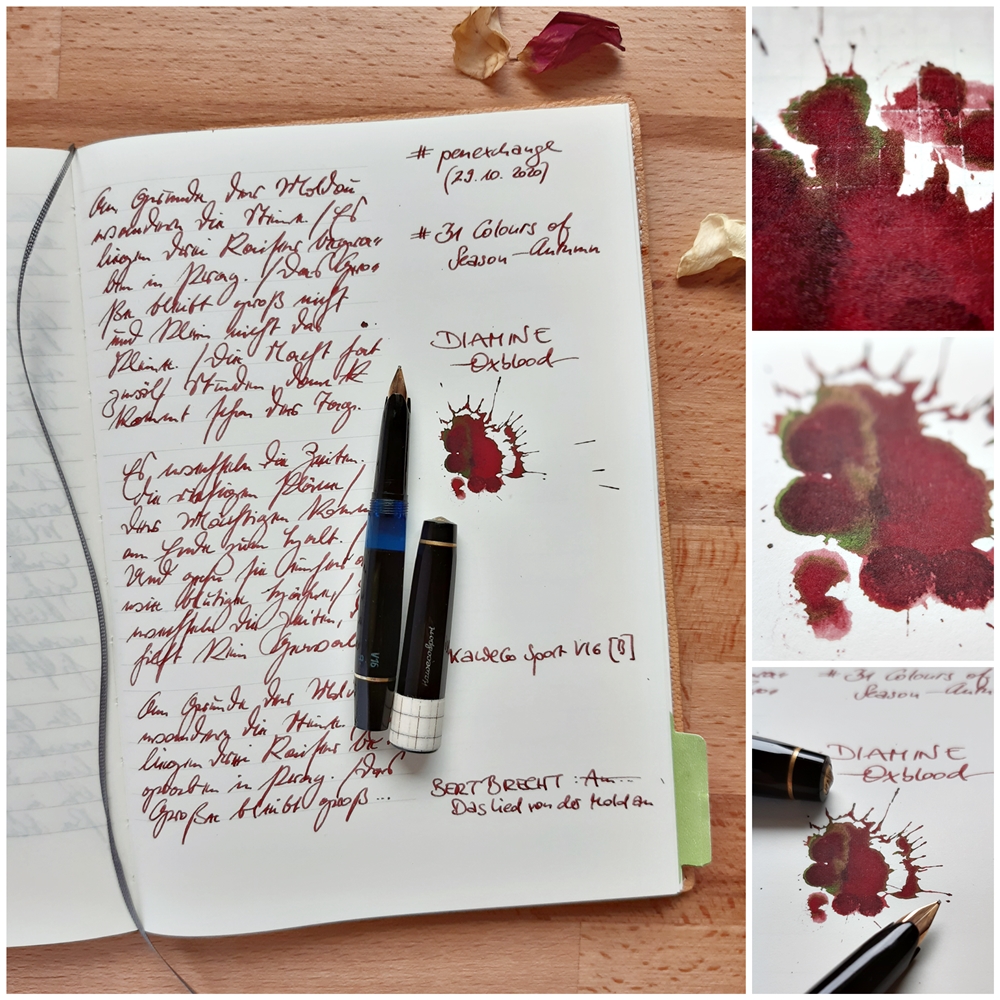 Am Grunde der Moldau
wandern die Steine / Es
liegen drei Kaiser begra=
ben in Prag. / Das Gro=
ße bleibt groß nicht
und klein nicht das
Kleine. / Die Nacht hat
zwölf Stunden, dann
kommt schon der Tag.
Es wechseln die Zeiten.
Die riesigen Pläne /
der Mächtigen komm
am Ende zum Halt.
Und gehn sie einher
wie blutige Hähne /
wechseln die Zeiten,
hilft kein Gewal
Am Grunde der Mol
wandern die Steine.
liegen drei Kaiser be-
graben in Prag. / Das
Große bleibt groß...
# penexchange
(29.10.2020)
# 31 Colours of
Season - Autumn
DIAMINE
Oxblood
KaWeCo Sport V16 [B]
BERT BRECHT : Am...
Das Lied von der Moldau
V16
Kaweco Sport
# 31 Colours of
Season - Autum
DIAMINE
Oxblood